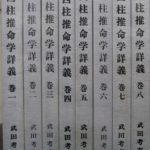 四柱推命学詳義 巻一 武田考
四柱推命学詳義 巻二 武田考
四柱推命学詳義 巻三 武田考
四柱推命学詳義 巻四 武田考
四柱推命学詳義 巻五 武田考
四柱推命学詳義 巻六 武田考
四柱推命学詳義 巻七 武田考
四柱推命学詳義 巻八 武田考